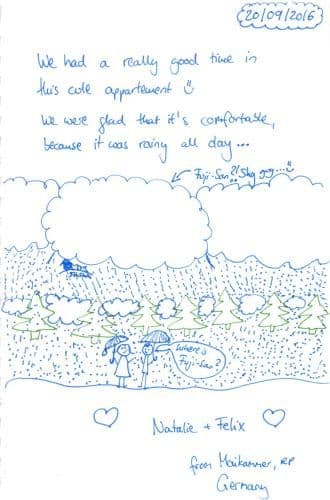 20/09/2016
We had a really good time in
this cute appartement
We were glad that it's comfortable,
because it was rainy all day...
Fuji-San?! Shy guy...
Where is
Fuji-San?
Natalie + Felix
from Maikammer, RP
Germany